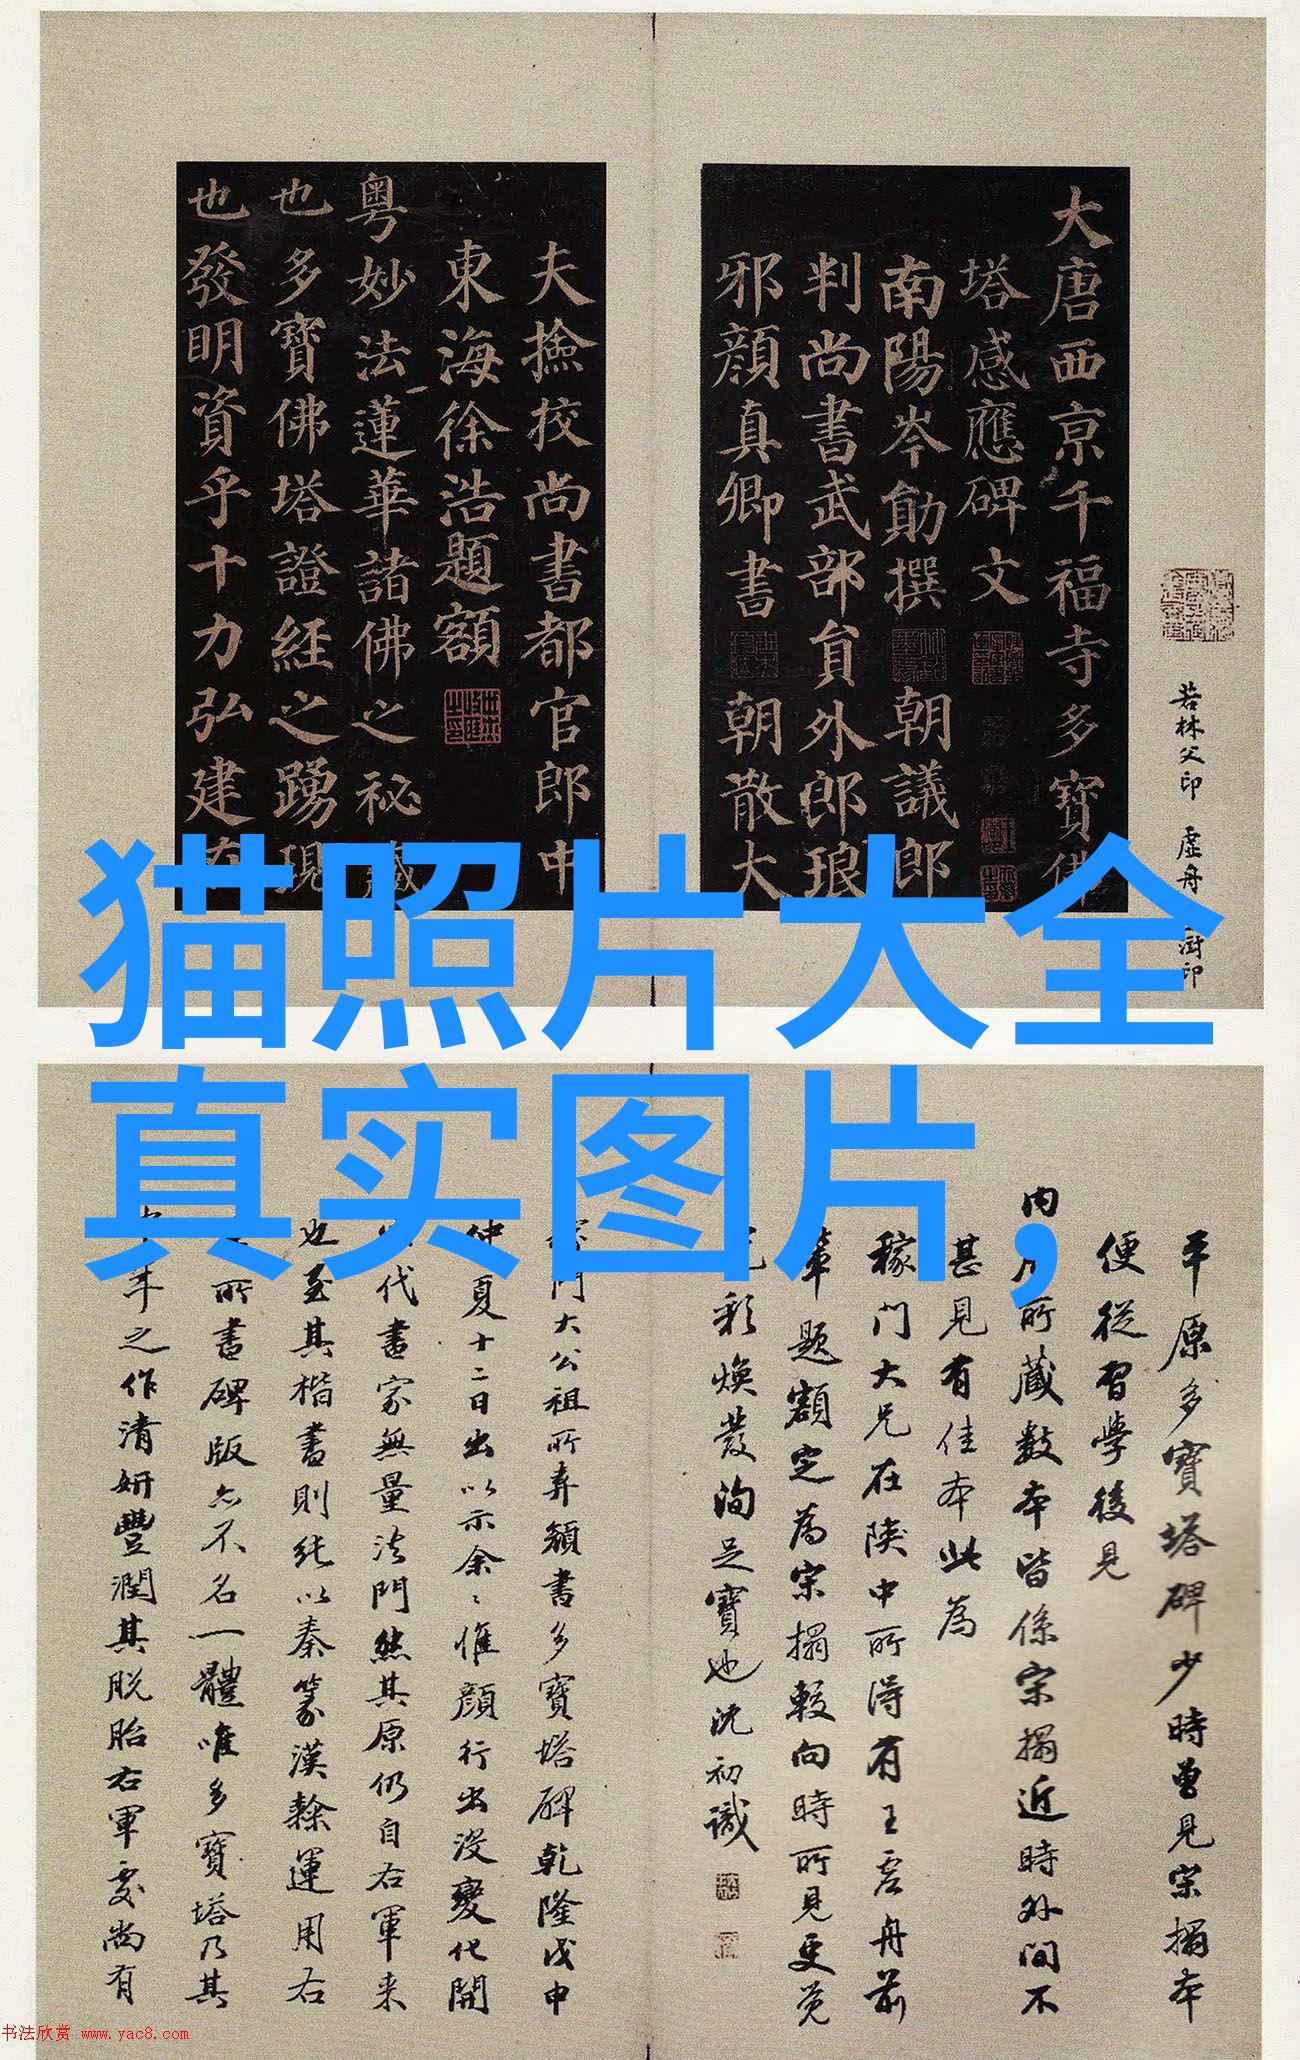 大唐西京千福寺多寶佛
塔感應碑文
南陽岑勛撰
朝議郎
判尚書武部員外郎琅
邪顏真卿書
朝散大
夫撿挍尚書都官郎中
東海徐浩題額
粵妙法蓮華諸佛之祕藏
也多寶佛塔證經之踴現
也發明資乎十力弘建在
若林父印
虛舟
澍印
猫照片大全
真实图片,
平原多寶塔碑少時曾見宋搨本
便從習學後見
内府所藏數本皆係宋搨近時外間不
甚見有佳本此為
稼門大兄在陝中所得有王虛舟前
輩題額定為宋搨較向時所見更覺
光彩煥發洵足寶也沈初識
稼門大公祖所弆顏書多寶塔碑乾隆戊申
仲夏十二日出以示余惟顏行出沒變化開
代書家無量法門然其原仍自右軍来
也至其楷書則純以秦篆漢隸運用右
所書碑版亦不名一體唯多寶塔乃其
年之作清妍豐潤其脫胎右軍處尚有
书法欣赏 www.yac8.com